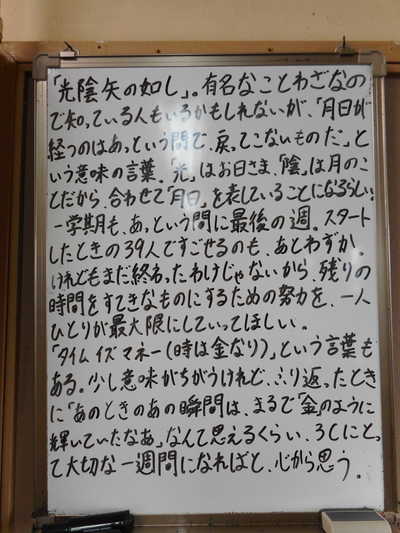 「光陰矢の如し」。有名なことわざなの
で知っている人もいるかもしれないが、「月日が
経つのはあっという間で、戻ってこないものだ」と
いう意味の言葉。「光」はお日さま、「陰」は月のこ
とだから、合わせて「月日」を表していることになるらしい。
一学期も、あっという間に最後の週。スタート
したときの39人ですごせるのも、あとわずか。
けれどもまだ終わったわけじゃないから、残りの
時間をすてきなものにするための努力を、一人
ひとりが最大限にしていってほしい。
「タイムイズマネー(時は金なり)」という言葉も
ある。少し意味がちがうけれど、ふり返ったとき
に「あのときのあの瞬間は、まるで「金のように
輝いていたなあ」なんて思えるくらい、3Cにとっ
て大切な一週間になればと、心から思う。